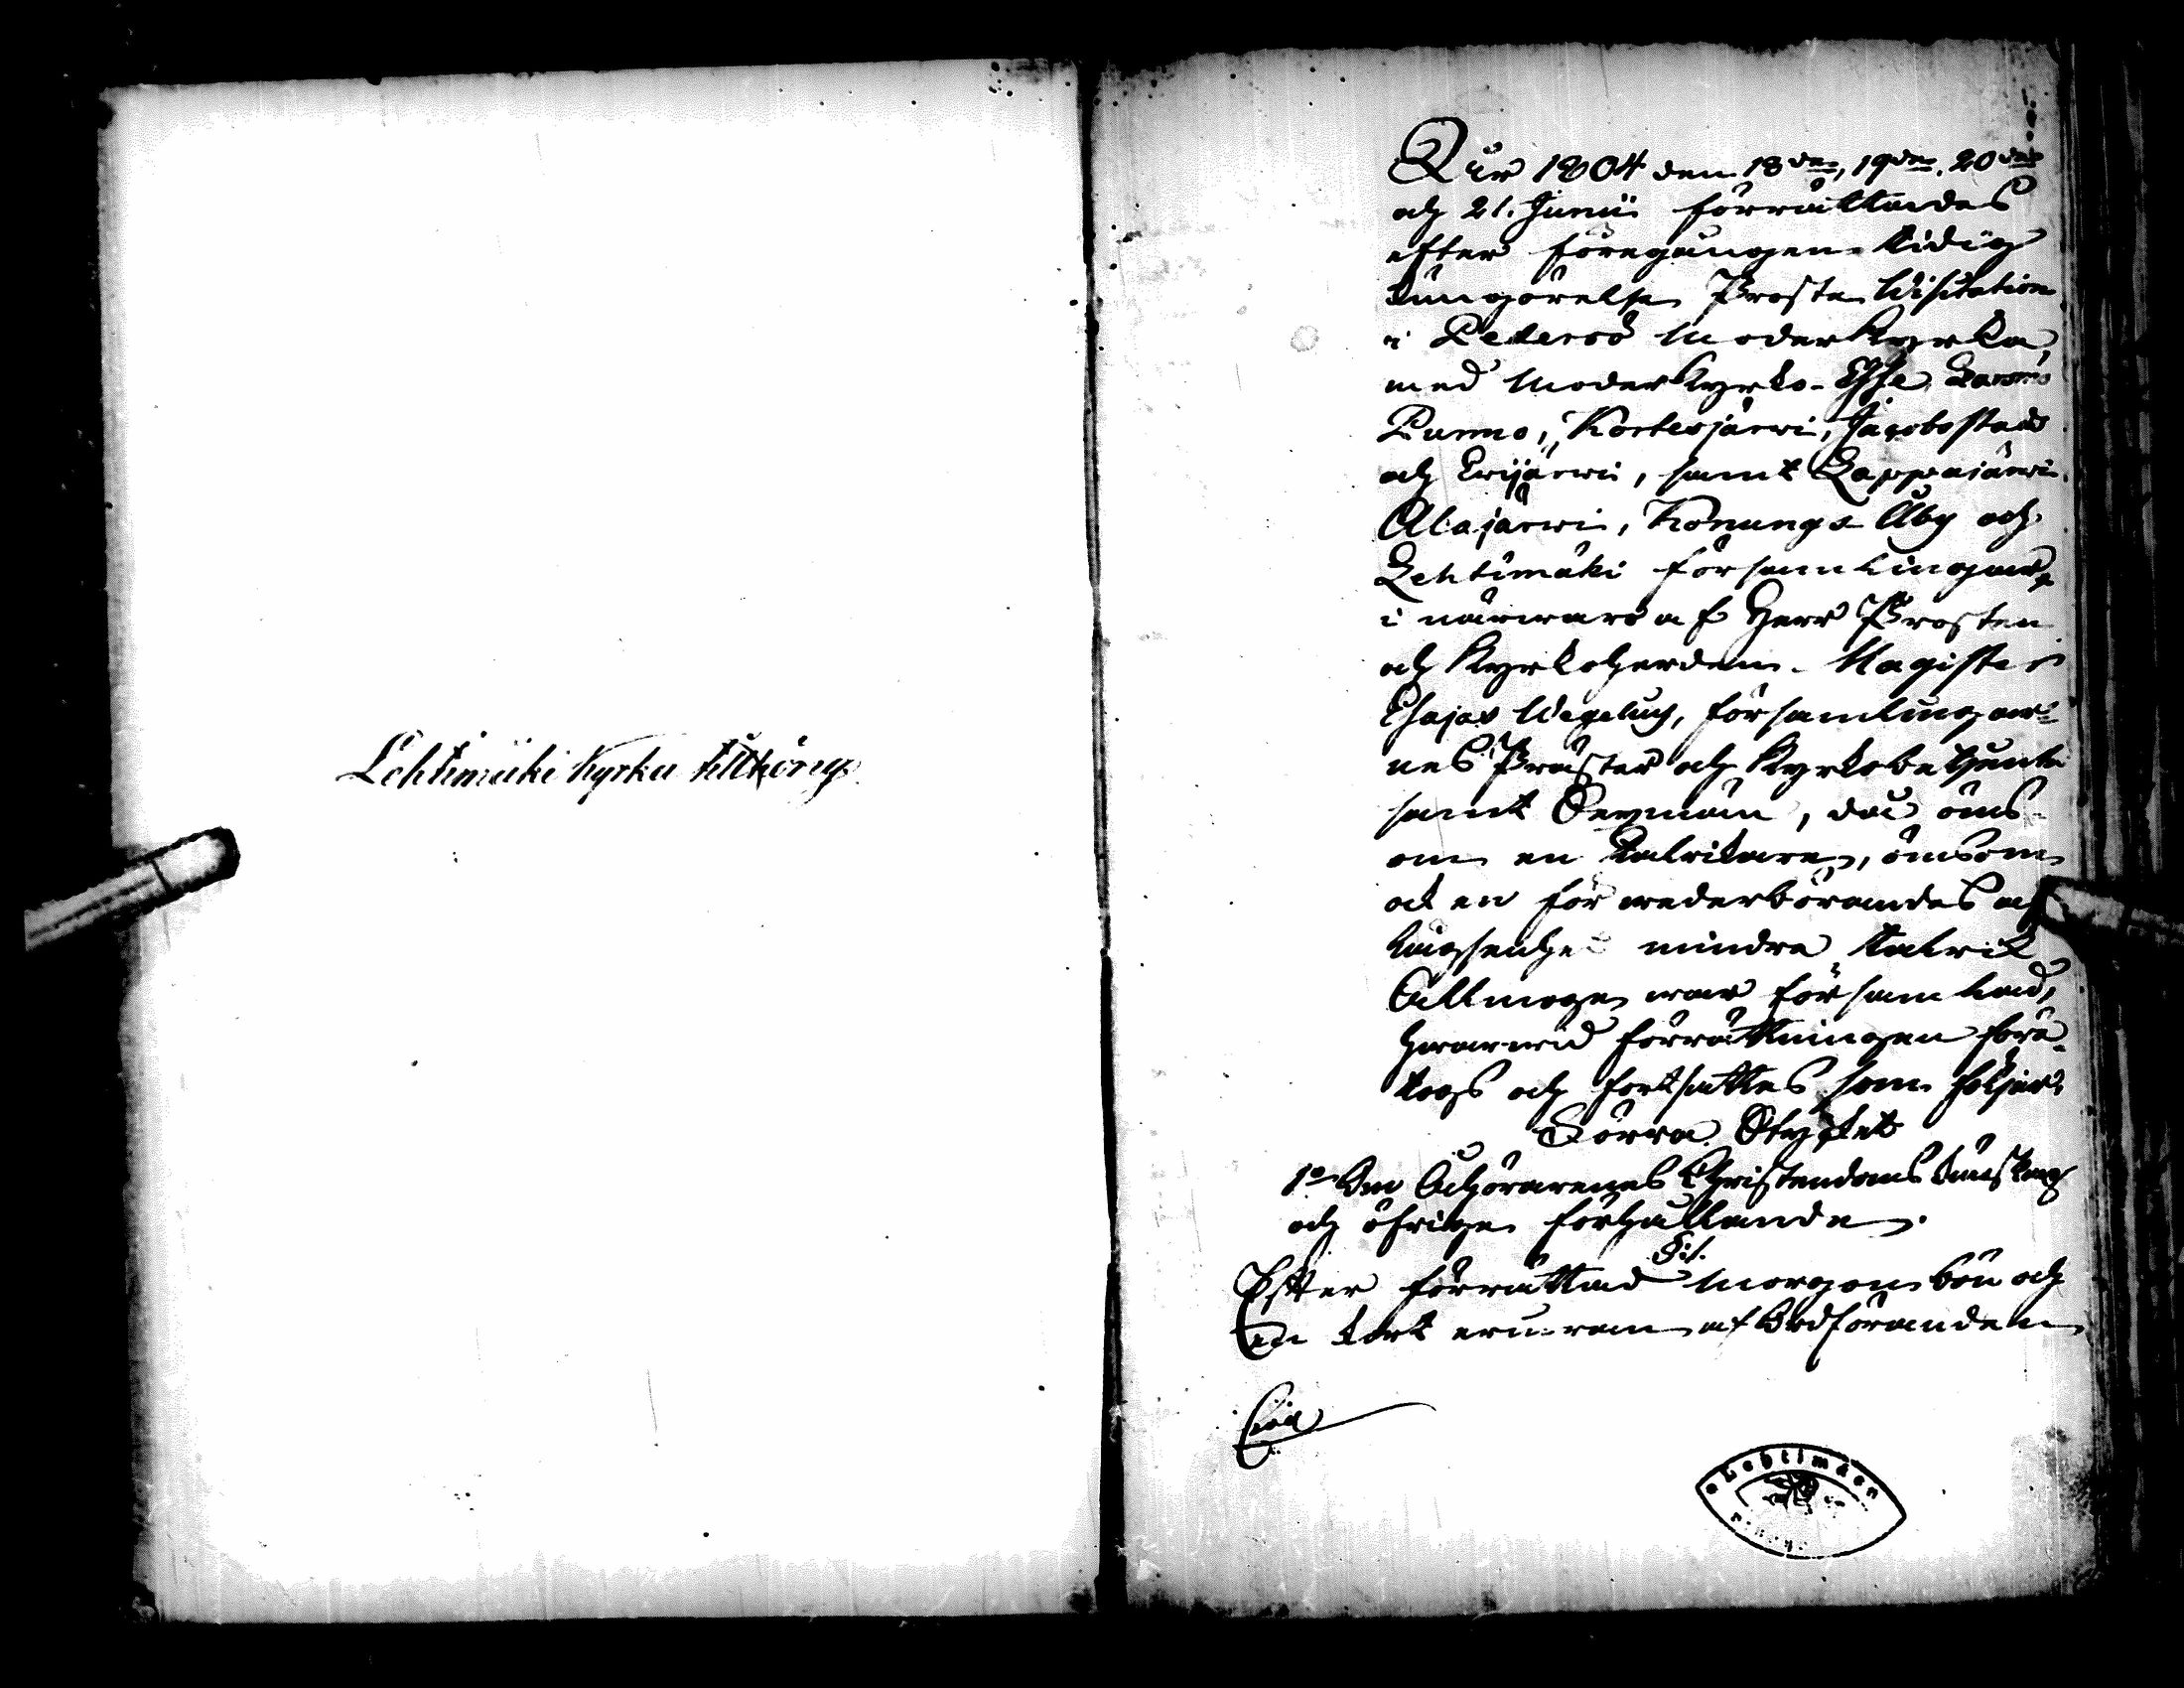 Lehtimäki Kyrka tillhörig
Åhr 1804 den 18de, 19de, 20de
och 21. Junii förrättades
efter föregången tidig
kungörelse Proste Visitation
i Pedersö Moderkyrka,
med Moderkyrko- Esse
Purmo, Kortesjärwi, Jacobstads
och Ewijärwi, samt Lappajärwi
Alajärwi, Könungs Åby och
Lehtimäki församlingar,
i närwaro af Herr Prosten
och Kyrkoherden Magister
Esajas Wegelius, församlingar-
nes Präster och Kyrkobetjente
samt Sexmän, då öms-
om en talrikare, ömsom
ock en för wederbörandes af-
lägsenhet mindre talrik
Allmoge war församlad,
hwarwid förrättningen före-
togs och fortsattes som följer.
Förra Stycket
1o Om Åhörarenes Christendoms kunskap
och öfrige förhållande.
§:1.
Efter förrättad Morgonbön och
en kort af Ordföranden
Lehtimäen